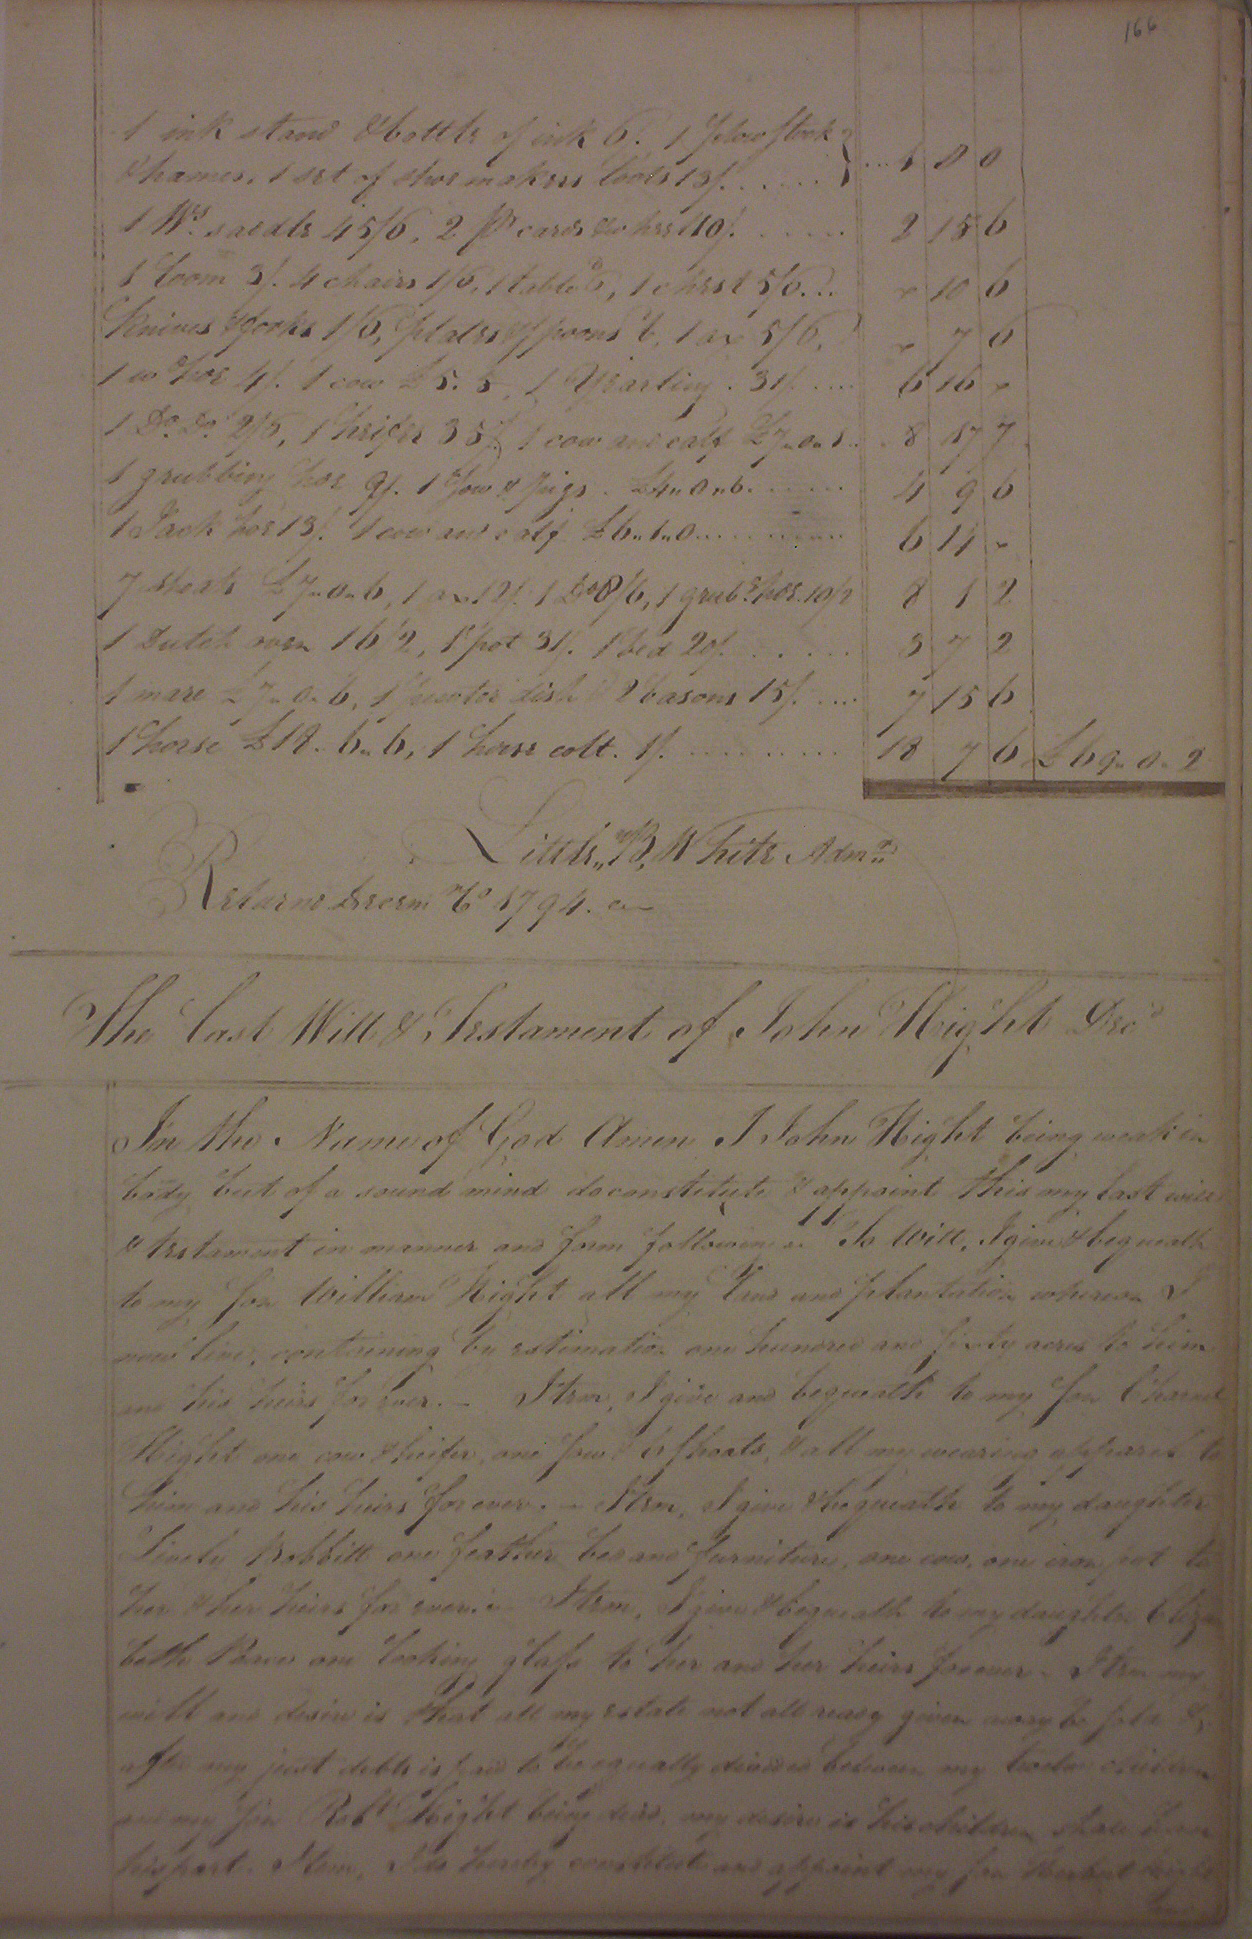 166
1 ink stand & bottle of ink 6. 1 plow stock
& hames, 1 set of shoe makers tools 13/. ...... } ... 1 0 0
1 Ws. saddle 45/6, 2 pr cards &c 10/. ..... 2 15 6
1 Loom 3/. 4 chairs 1/6, 1 table 6, 1 chest 5/6... " 10 6
Knives & forks 1/6, plates & spoons 6, 1 ax 5/6, " 7 6
1 w hoe 4/. 1 cow £5. 5, 1 Yearling. 31/. .... 6 16 "
1 Do. Do. 2/6, 1 heifer 35/. 1 cow and calf £7..0..1.. 8 17 7
1 grubbing hoe 9/. 1 Sow & Pigs. £4..0..6. ..... 4 9 6
1 Jack hoe 13/. 1 cow and calf £6..1..0 ........ 6 14 "
7 sheats £7..0..6, 1 ax. 12/. 1 Do 8/6, 1 grubg. hoe. 10/2 8 1 2
1 Dutch oven 16/2, 1 pot 31/. 1 bed 20/. ...... 3 7 2
1 mare £7..0..6, 1 pewter dish & 2 basons 15/. .... 7 15 6
1 horse £18..6..6, 1 horse colt. 1/. .......... 18 7 6 £69..0..2
Little,, B, White Admr.
Returned Decem. To 1794.
The Last Will & Testament of John Hight Decd
In the Name of God Amen I John Hight being weak in
body but of a sound mind do constitute & appoint this my last will
& testament in manner and form following To Will, I give & bequeath
to my son William Hight all my land and plantation whereon I
now live, containing by estimation one hundred and sixty acres to him
and his heirs forever. - Item, I give and bequeath to my son
Hight one cow & heifer, one sow & 6 shoats, & all my wearing apparel to
him and his heirs forever. - Item, I give & bequeath to my daughter
Lively Bobbitt one feather bed and furniture, one cow, one iron pot to
her & her heirs for ever. - Item, I give & bequeath to my daughter Eliza
beth one looking glass to her and her heirs forever - Item my
will and desire is that all my estate not all ready given away be sold &
after my just debts is paid to be equally divided between my twelve children
and my son Robt. Hight being dead, my desire is his children shall have
his part. Item, I do hereby constitute and appoint my son Herbert Hight